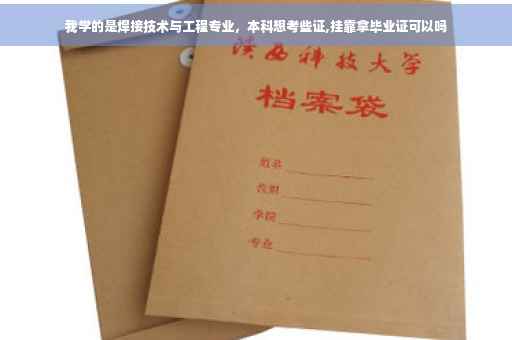 我学的是焊接技术与工程专业，本科想考些证,挂靠拿毕业证可以吗
陕西科技大学
档案袋
姓名
学院
专业